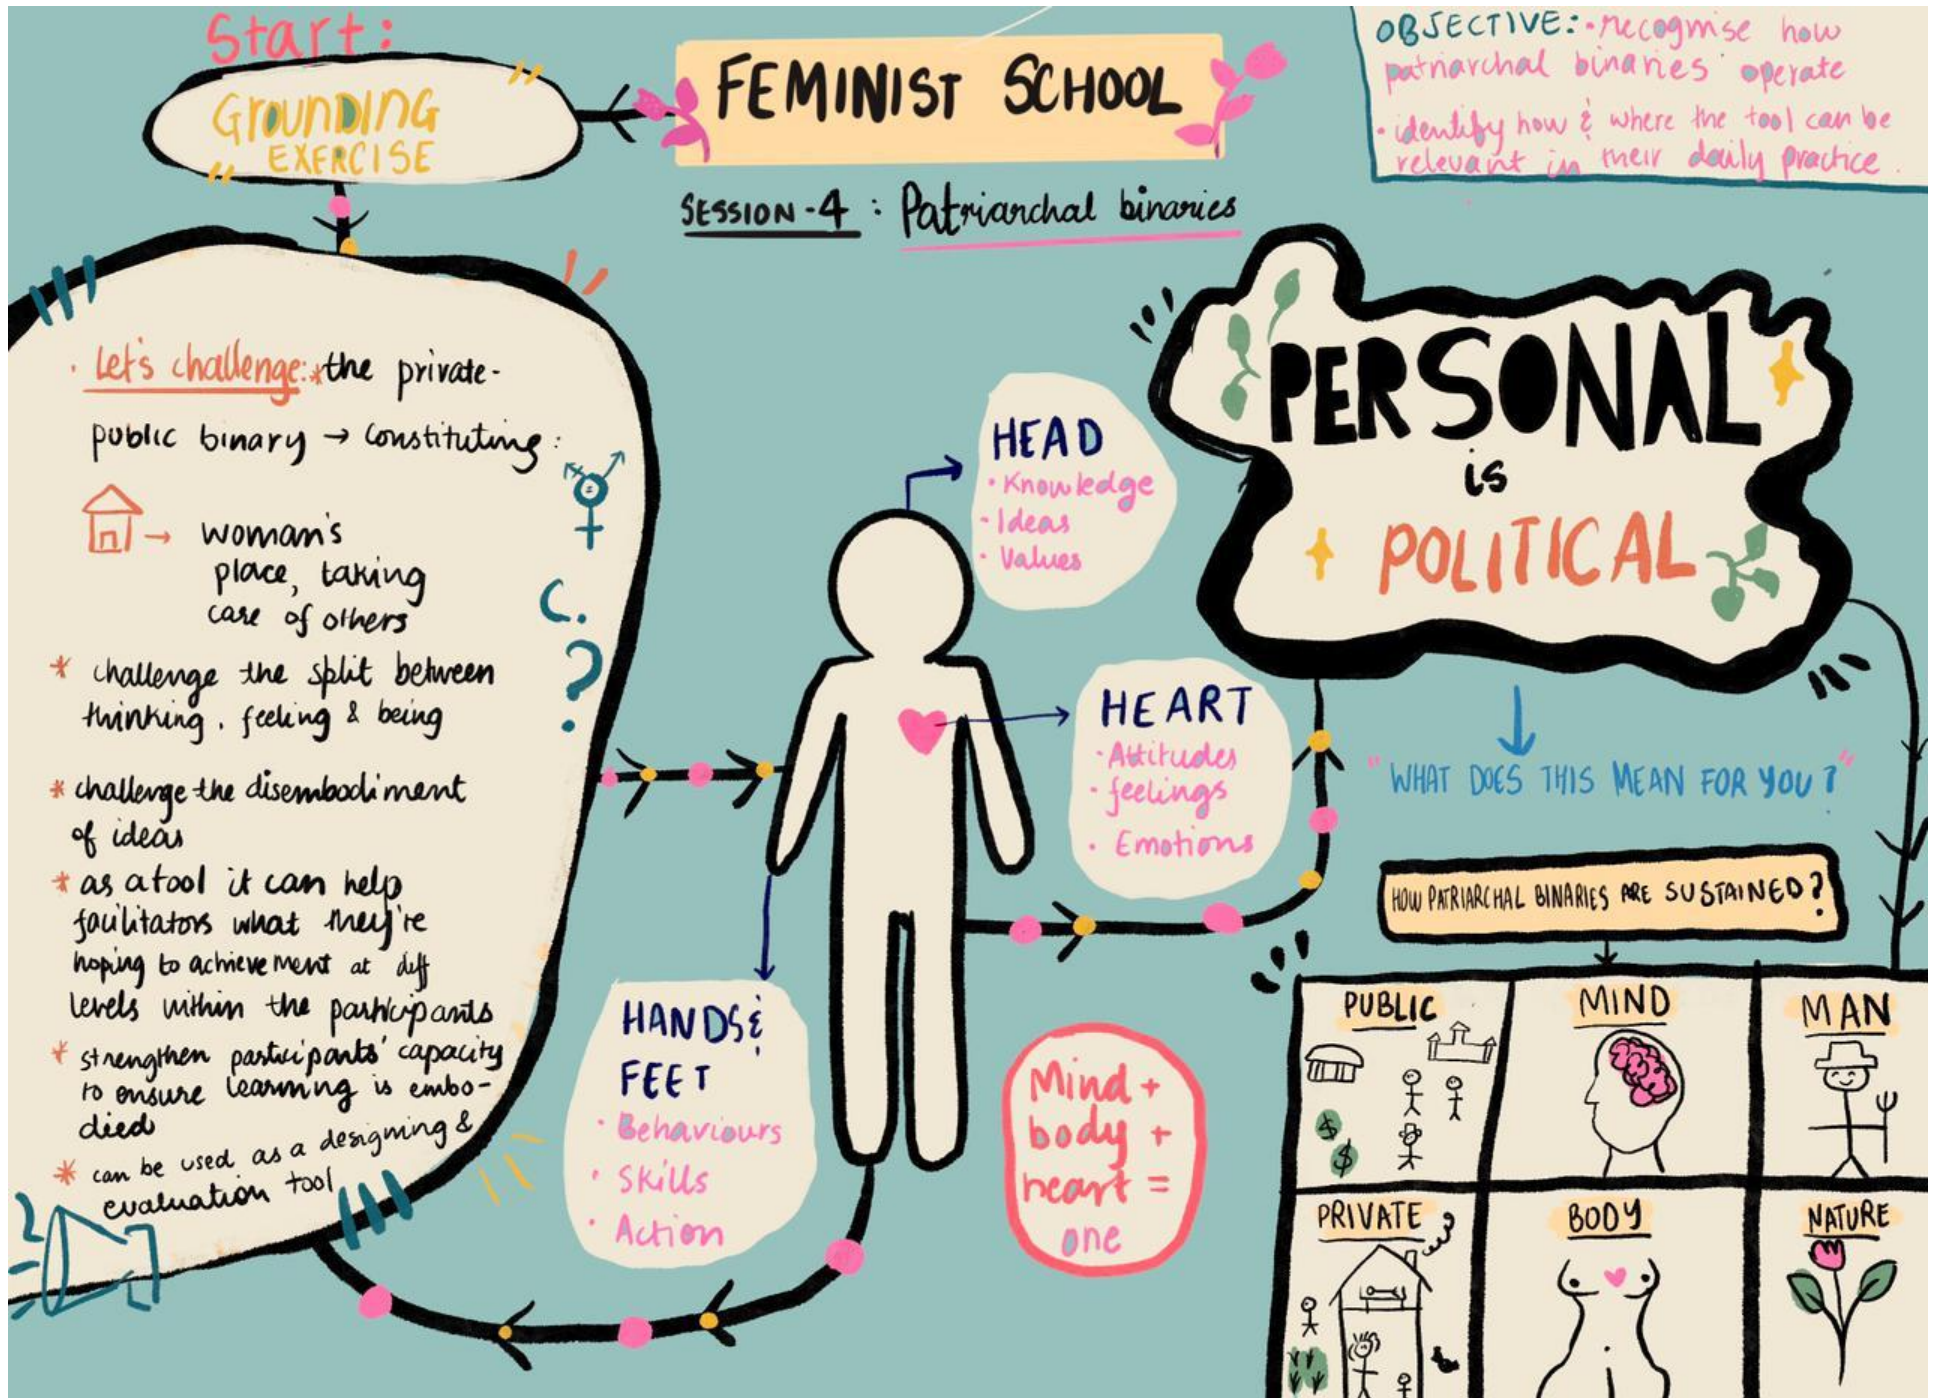 Start:
GROUNDING
EXERCISE
FEMINIST SCHOOL
SESSION-4 : Patriarchal binaries
OBJECTIVE: • recognise how
patriarchal binaries operate
• identify how & where the tool can be
relevant in their daily practice.
• Let's challenge: * the private-
public binary → constituting:
→ woman's
place, taking
care of others
* challenge the split between
thinking, feeling & being
* challenge the disembodiment
of ideas
* as a tool it can help
facilitators what they're
hoping to achievement at diff
levels within the participants
* strengthen participants' capacity
to ensure learning is embo-
died
* can be used as a designing &
evaluation tool
?
HEAD
• Knowledge
• Ideas
• Values
HEART
• Attitudes
• feelings
• Emotions
HANDS &
FEET
• Behaviours
• Skills
• Action
Mind +
body +
heart =
one
PERSONAL
is
POLITICAL
"WHAT DOES THIS MEAN FOR YOU?"
HOW PATRIARCHAL BINARIES ARE SUSTAINED?
PUBLIC
$
$
MIND
MAN
PRIVATE
BODY
NATURE